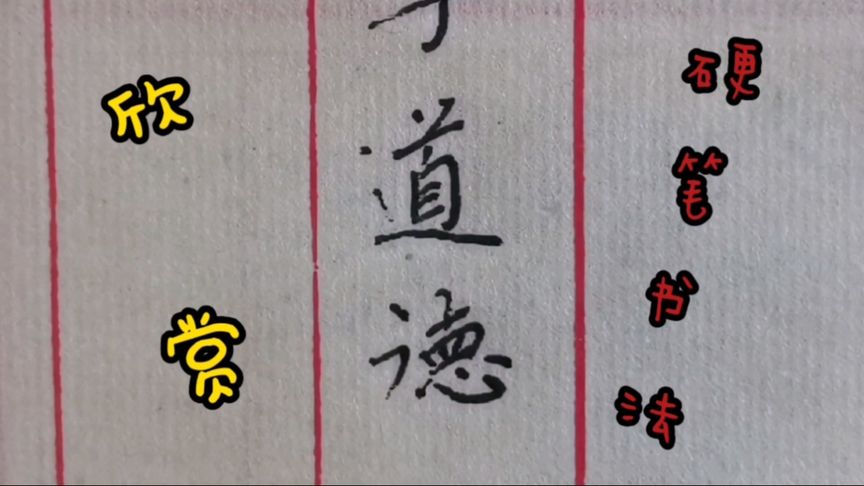 道德
硬笔书法
欣赏